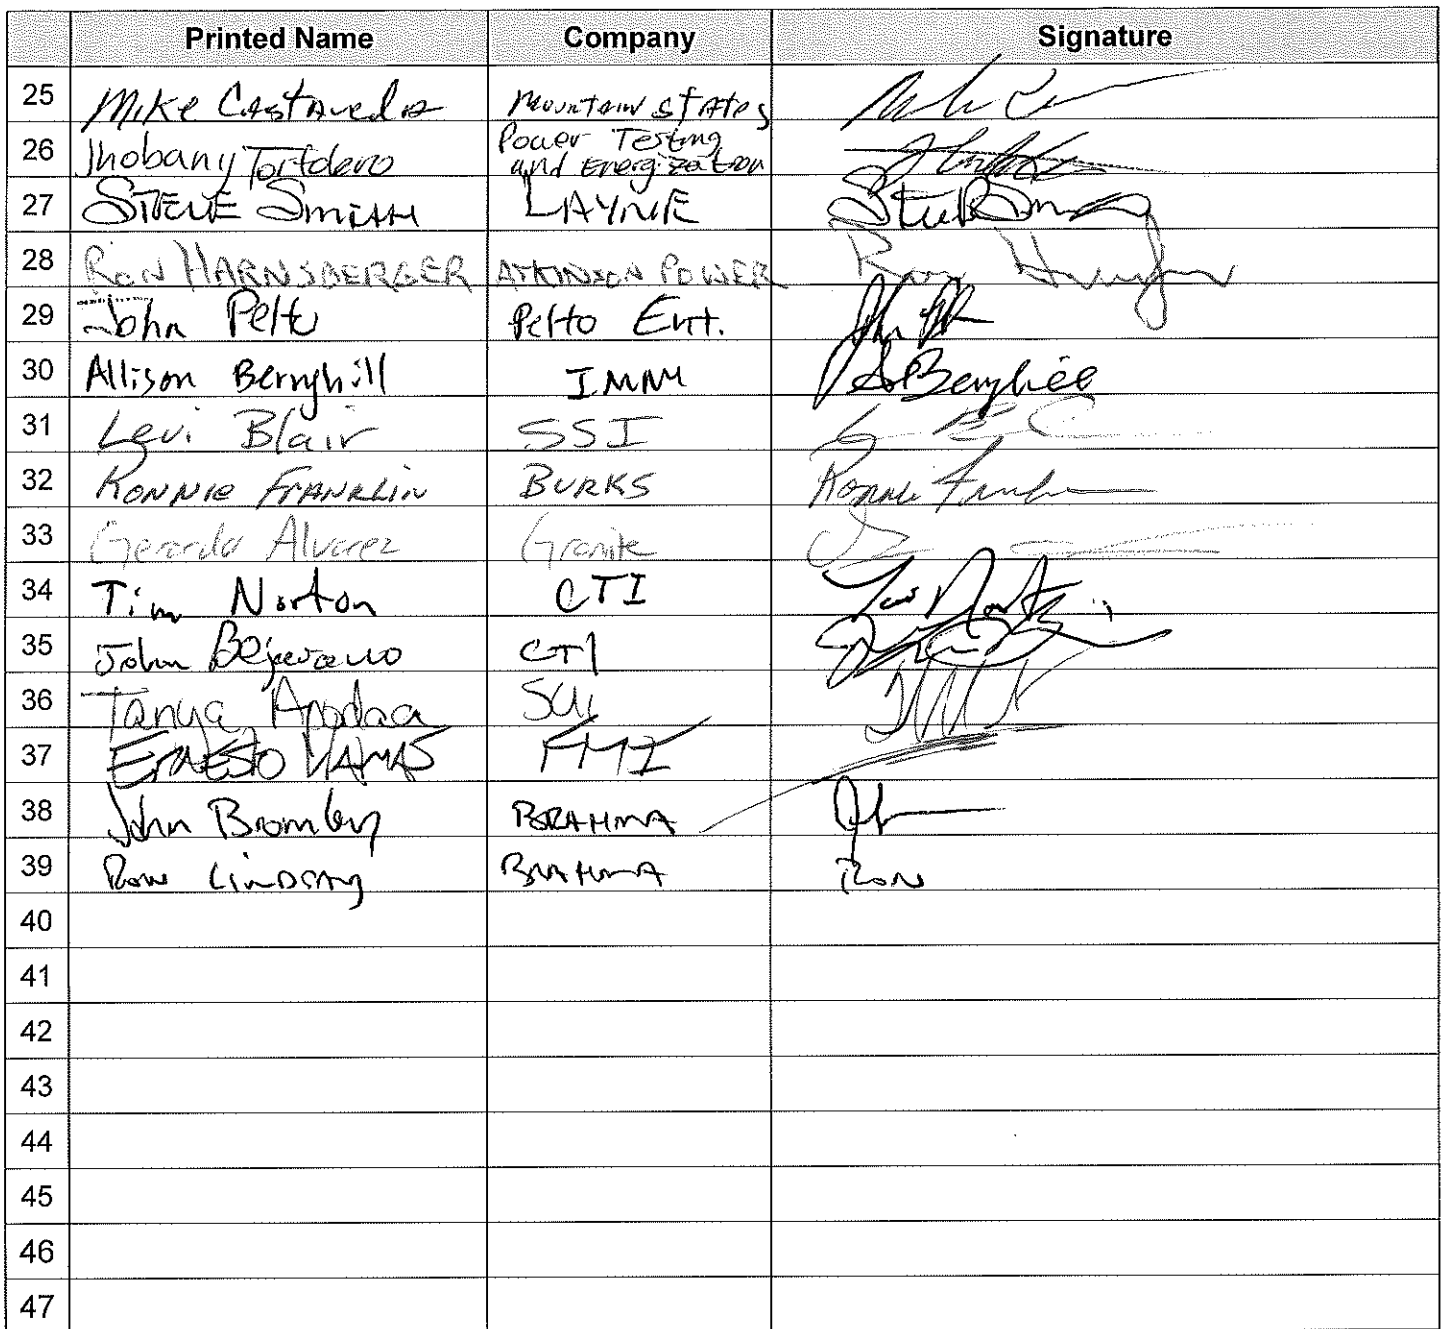 Printed Name Company Signature
25 Mike Castaneda Mountain States
26 Jhobany Power Testing
and Energization
27 STEVE SMITH LAYNE
28 RON HARNSBERGER ATKINSON POWER
29 John Pelto Pelto Ent.
30 Allison Berryhill IMM
31 Levi Blair SSI
32 RONNIE FRANKLIN BURKS Ronnie
33 Gerardo Alvarez Granite
34 Tim Norton CTI
35 John Bejarano CTI
36 Tanya Apodaca
37 ERNESTO LAMAS FMI
38 John Bromley BRAHMA
39 Ron LINDSAY BRAHMA RON
40
41
42
43
44
45
46
47